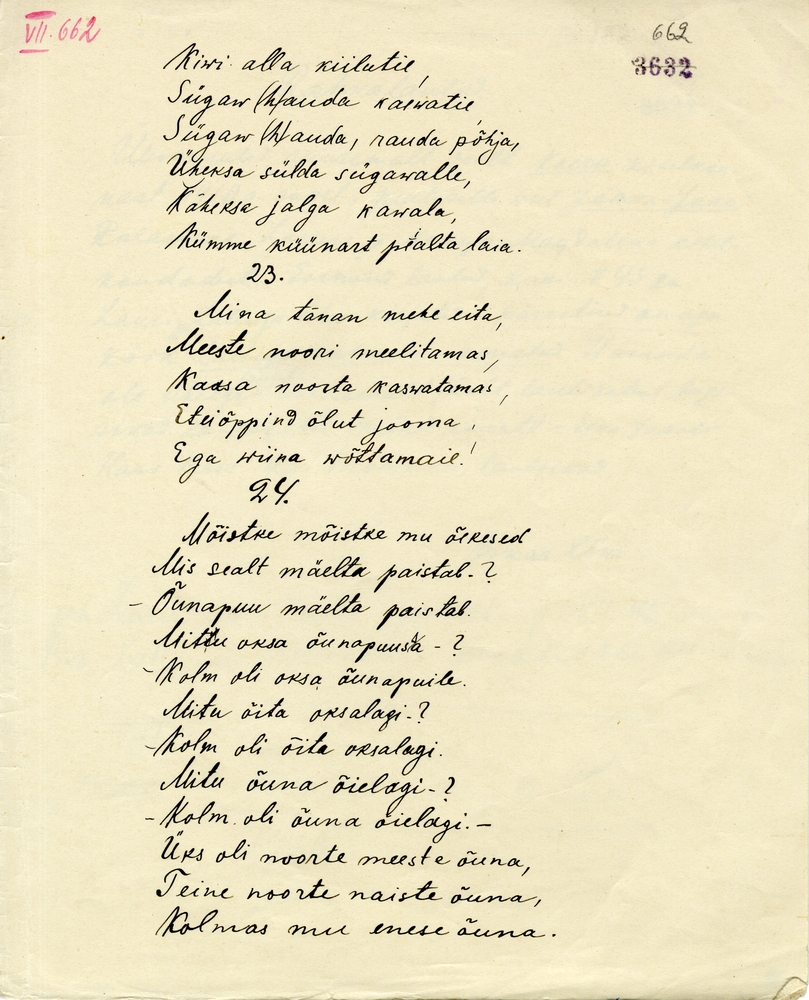 VII. 662
662
3632
Kiwi alla kiilutie,
Sügaw (h)auda kaewatie,
Sügaw (h)auda, rauda põhja,
Üheksa sülda sügawalle,
Kaheksa jalga kawala,
Kümme küünart pealta laia.
23.
Mina tänan mehe eita,
Meeste noori meelitamas,
Kaasa noorta kaswatamas,
Eteiõppind õlut jooma,
Ega wiina wõttamaie!
24.
Mõistke mõistke mu õekesed
Mis sealt mäelta paistab-?
- Õunapuu mäelta paistab.
Mittu oksa õunapuusa - ?
- Kolm oli oksa õunapuile.
Mitu õita oksalagi-?
- Kolm oli õita oksalagi.
Mitu õuna õielagi-?
- Kolm oli õuna õielagi. -
Üks oli noorte meeste õuna,
Teine noorte naiste õuna,
Kolmas mu enese õuna.